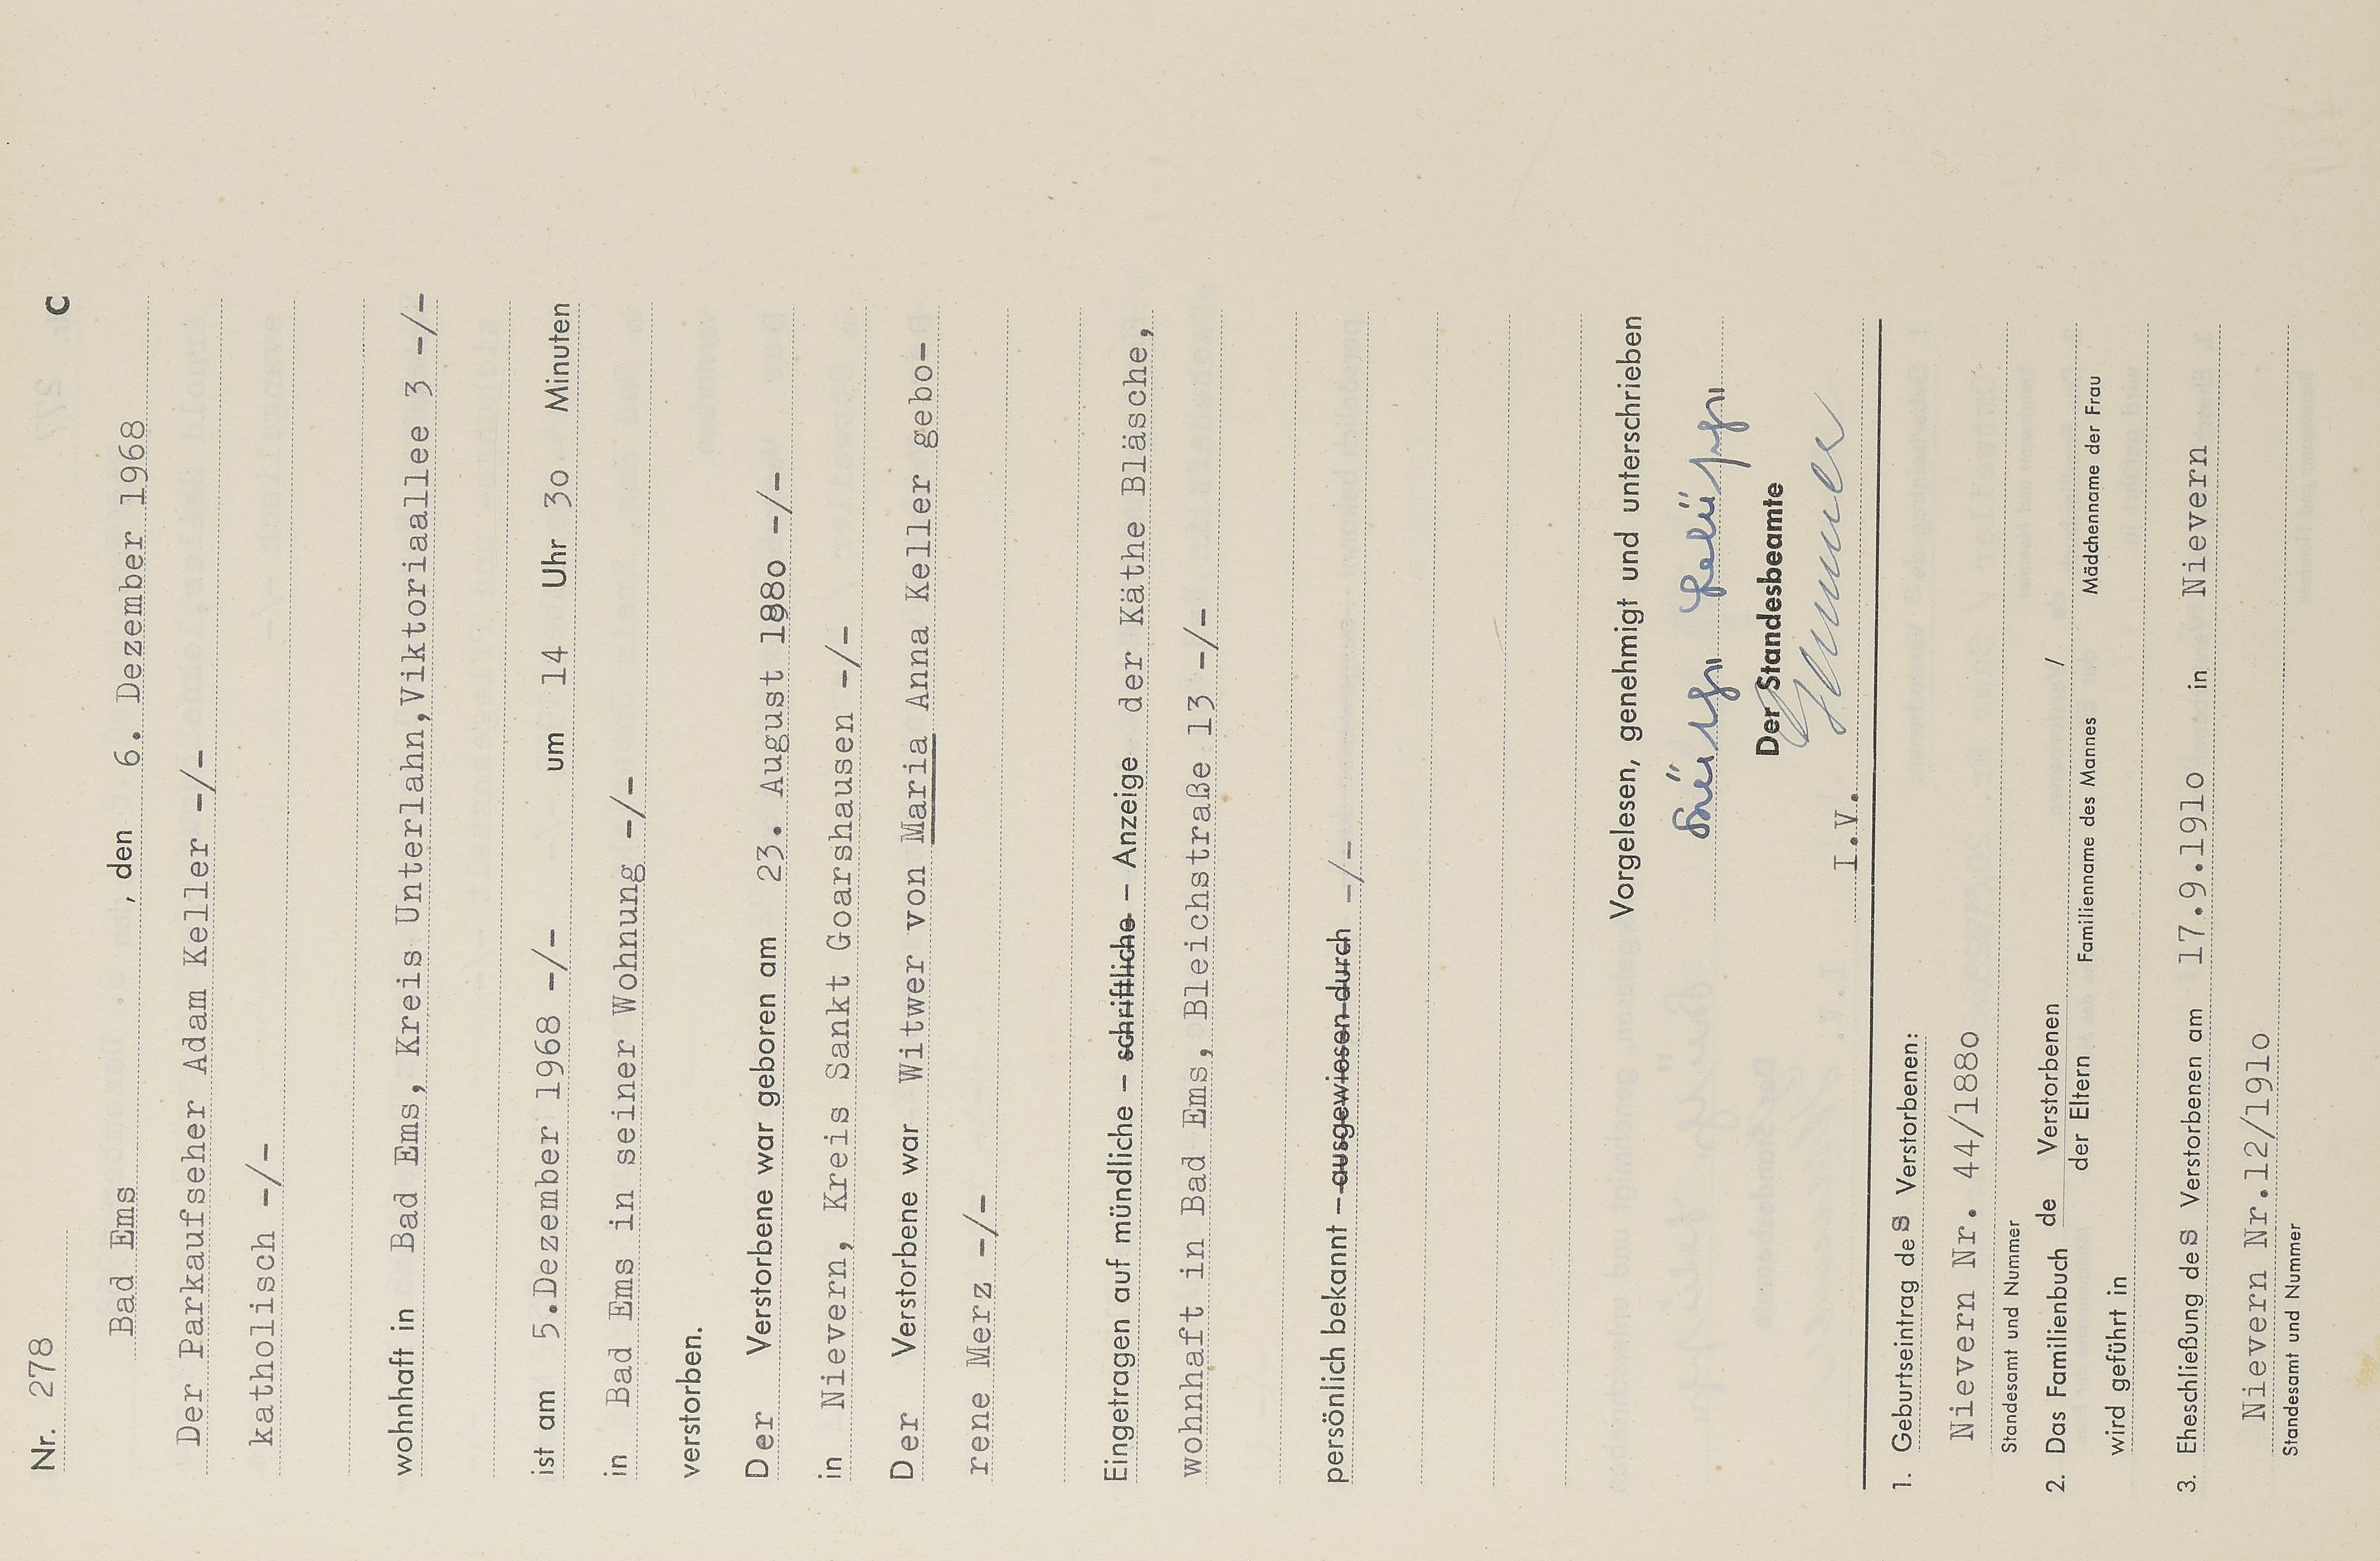 Nr. 278 C
Bad Ems , den 6. Dezember 1968
Der Parkaufseher Adam Keller -/-
katholisch -/-
wohnhaft in Bad Ems, Kreis Unterlahn,Viktoriaallee 3 -/-
ist am 5.Dezember 1968 -/- um 14 Uhr 3o Minuten
in Bad Ems in seiner Wohnung -/-
verstorben.
Der Verstorbene war geboren am 23. August 188o -/-
in Nievern, Kreis Sankt Goarshausen -/-
Der Verstorbene war Witwer von Maria Anna Keller gebo-
rene Merz -/-
Eingetragen auf mündliche – schriftliche – Anzeige der Käthe Bläsche,
wohnhaft in Bad Ems, Bleichstraße 13 -/-
persönlich bekannt – ausgewiesen durch -/-
Vorgelesen, genehmigt und unterschrieben
Der Standesbeamte
I.V.
1. Geburtseintrag des Verstorbenen:
Nievern Nr. 44/188o
Standesamt und Nummer
2. Das Familienbuch de Verstorbenen /
der Eltern Familienname des Mannes Mädchenname der Frau
wird geführt in
3. Eheschließung des Verstorbenen am 17.9.191o in Nievern
Nievern Nr.12/191o
Standesamt und Nummer